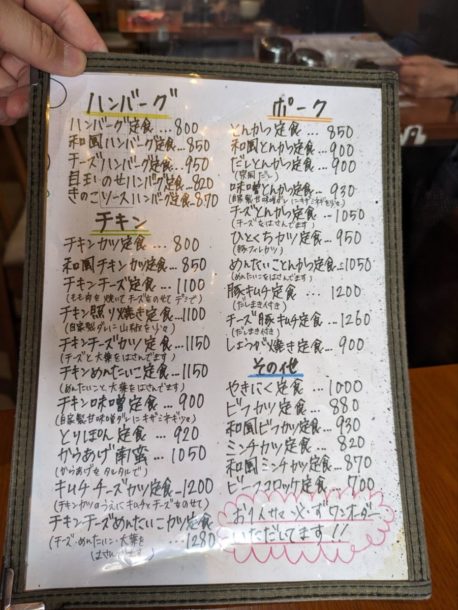 ハンバーグ
ハンバーグ定食…800
和風ハンバーグ定食…850
チーズハンバーグ定食…950
目玉のせハンバーグ定食…820
きのこソースハンバーグ定食…870
チキン
チキンカツ定食…800
和風チキンカツ定食…850
チキンチーズ定食…1100
(もも肉を焼いてチーズをのせてデミで)
チキン照り焼き定食…1100
(自家製ダレに山椒をそえ)
チキンチーズカツ定食…1150
(チーズと大葉をはさんでます)
チキンめんたいこ定食…1150
(めんたいこと、大葉をはさんでます)
チキン味噌定食…900
(自家製甘味噌ダレにキザミネギのせ)
とりぽん定食…920
からあげ南蛮…1050
(からあげをタルタルで)
キムチチーズカツ定食…1200
(チキンカツのうえにキムチとチーズのせて)
チキンチーズめんたいこカツ定食
(チーズ・めんたいこ・大葉を
はさんでます)…1280
ポーク
とんかつ定食…850
和風とんかつ定食…900
だしとんかつ定食…900
(京風だし)
味噌とんかつ定食…930
(自家製甘味噌ダレにキザミネギのせ)
チーズとんかつ定食…1050
(チーズをはさんでます)
ひとくちカツ定食…950
(豚フィレカツ)
めんたいことんかつ定食…1050
(めんたいこをはさんでます)
豚キムチ定食…1200
(だしまき付き)
チーズ豚キムチ定食…1260
(だしまき付き)
しょうが焼き定食…900
その他
やきにく定食…1000
ビフカツ定食…880
和風ビフカツ定食…930
ミンチカツ定食…820
和風ミンチカツ定食…870
ビーフコロッケ定食…700
お1人サマ必ずワンオーダー
いただしてます!!